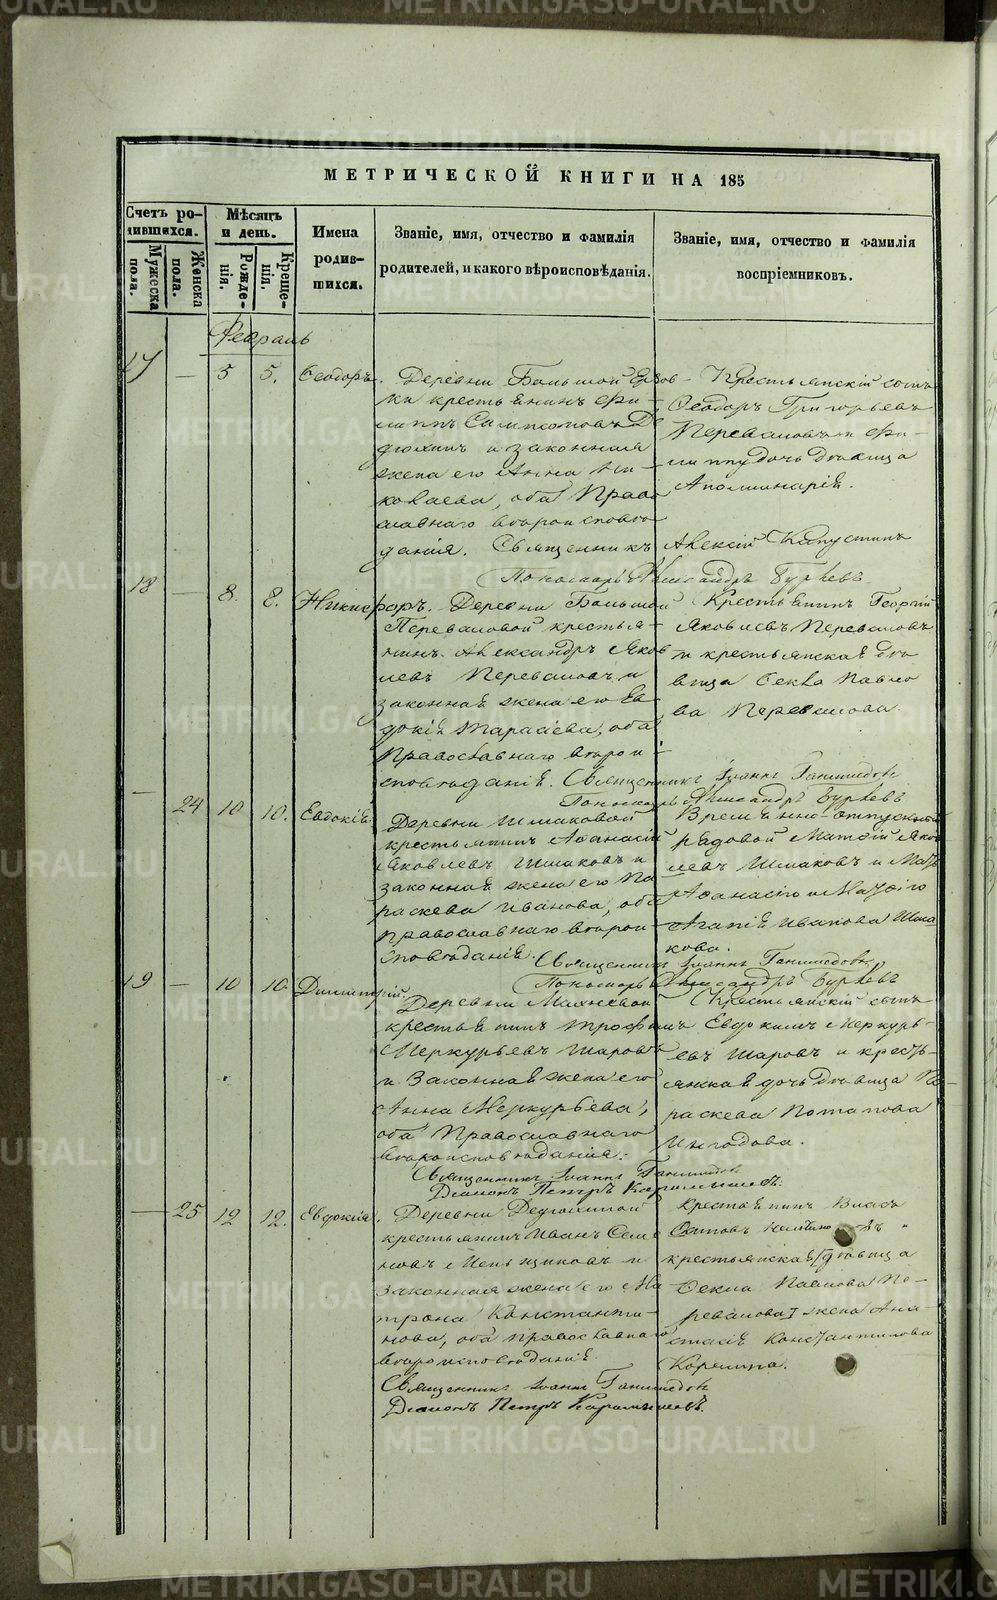 МЕТРИЧЕСКОЙ КНИГИ НА 185
Счетъ ро-
дившихся.
Мужеска
пола.
Женска
пола.
Мѣсяцъ
и день.
Рожде-
нія.
Креще-
нія.
Имена
родив-
шихся.
Званіе, имя, отчество и фамилія
родителей, и какого вѣроисповѣданія.
Званіе, имя, отчество и фамилія
воспріемниковъ.
Февраль
17 — 5 5. Ѳеодоръ.
Деревни Большой
ка крестьянинъ Фи-
липпъ Сампсоновъ
и законная
жена его Анна Ни-
колаева, оба Право
славнаго вѣроисповѣ
данія. Священникъ Алексій Капустинъ
Пономарь Александръ
Крестьянскій сынъ
Ѳеодоръ Григорьевъ
Переваловъ и Фи-
липпа дочь дѣвица
Аполлинарія.
18 — 8. 8. Никифоръ.
Деревни Большой
Переваловой крестья-
нинъ Александръ Яков
левъ Переваловъ и
законная жена его Ев
докія Тарасіева, оба
Православнаго вѣрои-
сповѣданія. Священникъ Іоаннъ Ганимедовъ
Пономарь Александръ
Крестьянинъ Георгій
Яковлевъ Переваловъ
и крестьянская дѣ
вица Ѳекла Павло
ва Перевалова.
— 24 10 10. Евдокія.
Деревни Шмаковой
крестьянинъ Аѳанасій
Яковлевъ Шмаковъ и
законная жена его Па
раскева Иванова, оба
православнаго вѣрои
сповѣданія.
Священникъ Іоаннъ Ганимедовъ
Пономарь Александръ
Временно-отпускный
рядовой Матѳій Яков
левъ Шмаковъ и
Аѳанасіго
Агапія Иванова Шма
кова.
19 — 10 10. Димитрій.
Деревни Махневой
крестьянинъ Трофимъ
Меркурьевъ Шаровъ
и законная жена его
Анна Меркурьева,
оба Православнаго
вѣроисповѣданія.
Священникъ Іоаннъ Ганимедовъ
Діаконъ Петръ
Крестьянскій сынъ
Евдокимъ Меркурь-
евъ Шаровъ и кресть-
янская дочь дѣвица Па-
раскева Потапова
— 25 12 12. Евдокія.
Деревни
крестьянинъ Иванъ Семе
новъ и
законная жена его Ма
трона Константи-
нова, оба православнаго
вѣроисповѣданія.
Священникъ Іоаннъ Ганимедовъ
Діаконъ Петръ
Крестьянинъ Власъ
крестьянская дѣвица
Ѳекла Павлова Пе-
ревалова жена Ана-
стасія Константинова
METRIKI.GASO-URAL.RU